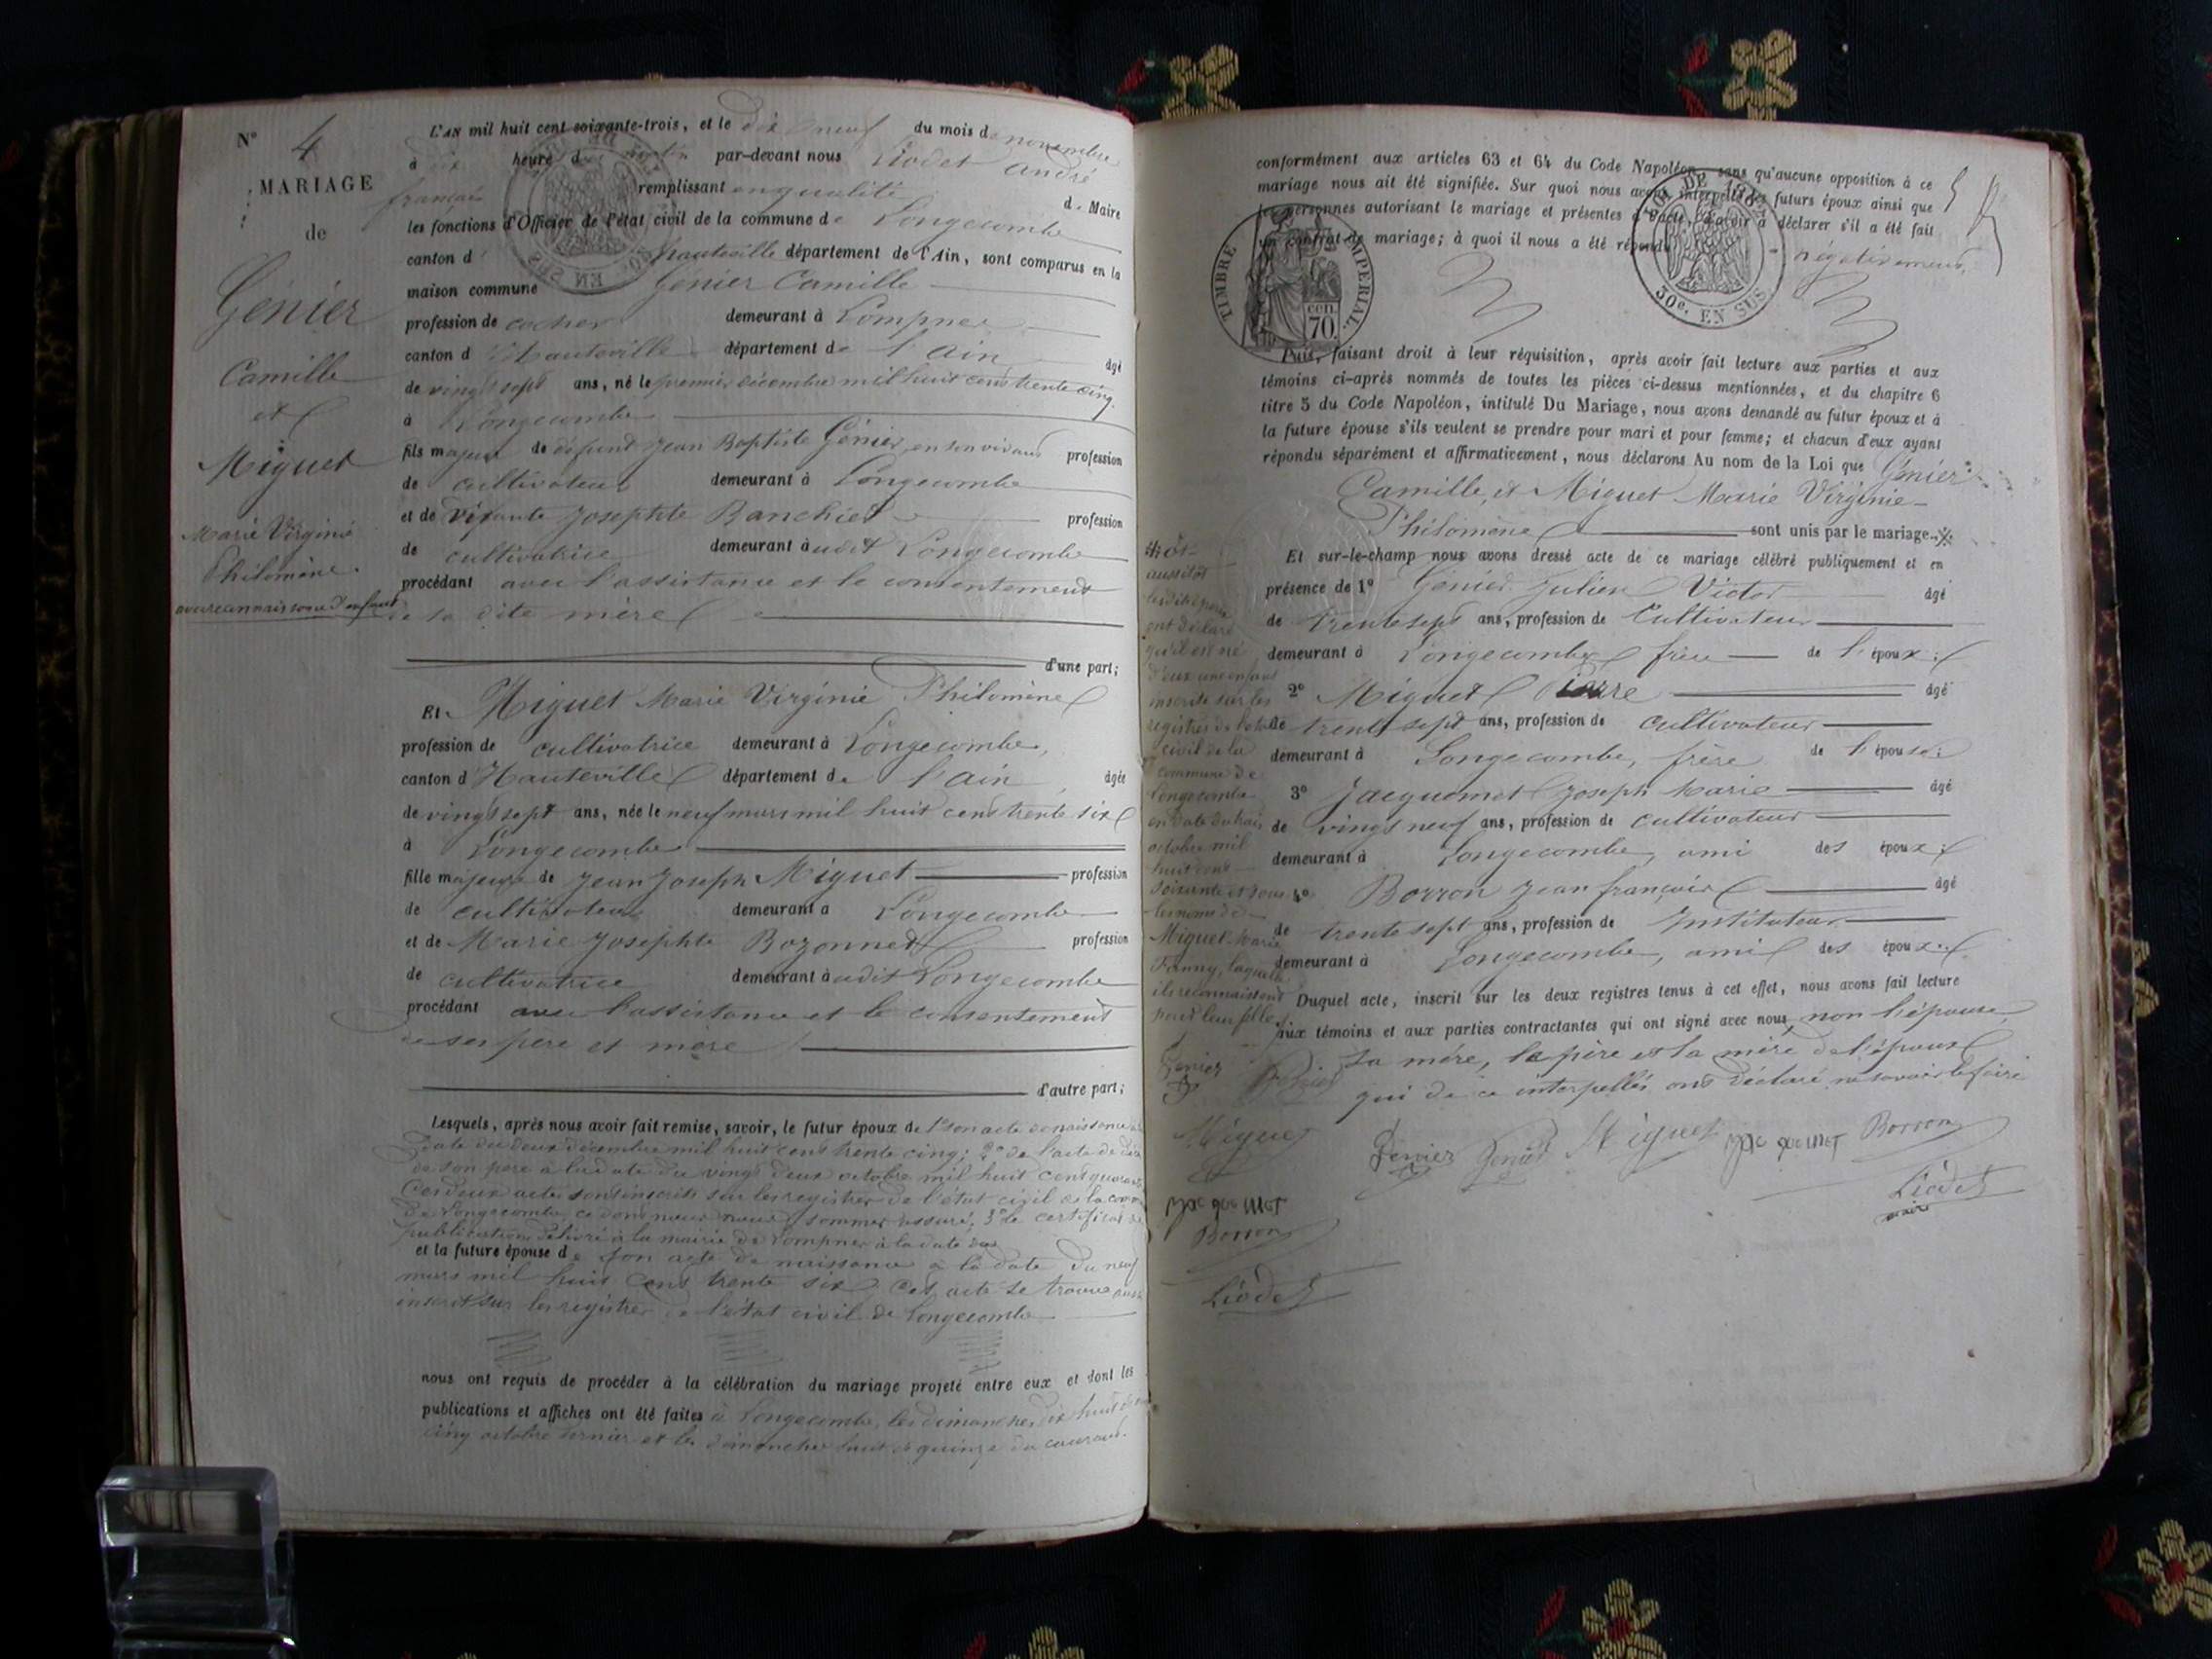 N° 4
MARIAGE
de
Génier
Camille
et
Miguet
Marie Virginie
Philomène.
avec reconnaissance d'enfant
L'AN mil huit cent soixante-trois, et le dix neuf du mois de novembre
à dix heure du matin par-devant nous Liodet André
français remplissant en qualité de Maire
les fonctions d'Officier de l'état civil de la commune de Longecombe
canton d'hauteville département de l'Ain, sont comparus en la
maison commune Génier Camille
profession de cocher demeurant à Lompnes
canton d'hauteville département de l'Ain âgé
de vingt sept ans, né le premier décembre mil huit cent trente cinq.
à Longecombe
fils majeur de défunt Jean Baptiste Génier, en son vivant profession
de cultivateur demeurant à Longecombe
et de vivante Josephte Banchet profession
de cultivatrice demeurant audit Longecombe
procédant avec l'assistance et le consentement
de sa dite mère
d'une part;
Et Miguet Marie Virginie Philomène
profession de cultivatrice demeurant à Longecombe,
canton d'Hauteville département de l'Ain, âgée
de vingt sept ans, née le neuf mars mil huit cent trente six
à Longecombe
fille majeure de Jean Joseph Miguet profession
de cultivateur demeurant à Longecombe
et de Marie Josephte Bozonnet profession
de cultivatrice demeurant audit Longecombe
procédant avec l'assistance et le consentement
de ses père et mère
d'autre part;
Lesquels, après nous avoir fait remise, savoir, le futur époux de 1° son acte de naissance à la
date du deux décembre mil huit cent trente cinq; 2° de l'acte de décès
de son père à la date du vingt deux octobre mil huit cent quarante
Ces deux actes sont inscrits sur les registres de l'état civil de la commune
de Longecombe, ce dont nous nous sommes assuré; 3° le certificat de
publication délivré à la mairie de Lompnes à la date du
et la future épouse de son acte de naissance à la date du neuf
mars mil huit cent trente six. Cet acte se trouve aussi
inscrit sur les registres de l'état civil de Longecombe
nous ont requis de procéder à la célébration du mariage projeté entre eux et dont les
publications et affiches ont été faites à Longecombe, les dimanches dix huit et vingt
cinq octobre dernier et les dimanches huit et quinze du courant.
conformément aux articles 63 et 64 du Code Napoléon, sans qu'aucune opposition à ce
mariage nous ait été signifiée. Sur quoi nous avons interpellé les futurs époux ainsi que
les personnes autorisant le mariage et présentes à l'acte, d'avoir à déclarer s'il a été fait
un contrat de mariage; à quoi il nous a été répondu négativement.
TIMBRE IMPERIAL.
cen. 70
50e. EN SUS
Puis, faisant droit à leur réquisition, après avoir fait lecture aux parties et aux
témoins ci-après nommés de toutes les pièces ci-dessus mentionnées, et du chapitre 6
titre 5 du Code Napoléon, intitulé Du Mariage, nous avons demandé au futur époux et à
la future épouse s'ils veulent se prendre pour mari et pour femme; et chacun d'eux ayant
répondu séparément et affirmativement, nous déclarons Au nom de la Loi que Génier
Camille, et Miguet Marie Virginie
Philomène sont unis par le mariage.
Et sur-le-champ nous avons dressé acte de ce mariage célébré publiquement et en
présence de 1° Génier Julien Victor âgé
de trente sept ans, profession de Cultivateur
demeurant à Longecombe frère de l'époux;
2° Miguet Pierre âgé
de trente sept ans, profession de cultivateur
demeurant à Longecombe, frère de l'épouse;
3° Jacquemet Joseph Marie âgé
de vingt neuf ans, profession de cultivateur
demeurant à Longecombe, ami des époux;
4° Borron Jean françois âgé
de trente sept ans, profession de Instituteur
demeurant à Longecombe, ami des époux.
Duquel acte, inscrit sur les deux registres tenus à cet effet, nous avons fait lecture
aux témoins et aux parties contractantes qui ont signé avec nous, non l'épouse
sa mère, le père et la mère de l'épouse
qui de ce interpellés ont déclaré ne savoir le faire
Genier Genier Miguet Jacquemet Borron
Liodet
maire
aussitôt
les dits époux
ont déclaré
qu'il est né
d'eux un enfant
inscrite sur les
registres de l'état
civil de la
commune de
Longecombe
en date du trois
octobre mil
huit cent
soixante et sous
les noms de
Miguet Marie
Fanny, laquelle
ils reconnaissent
pour leur fille.
Genier Genier
Miguet
Jacquemet
Borron
Liodet